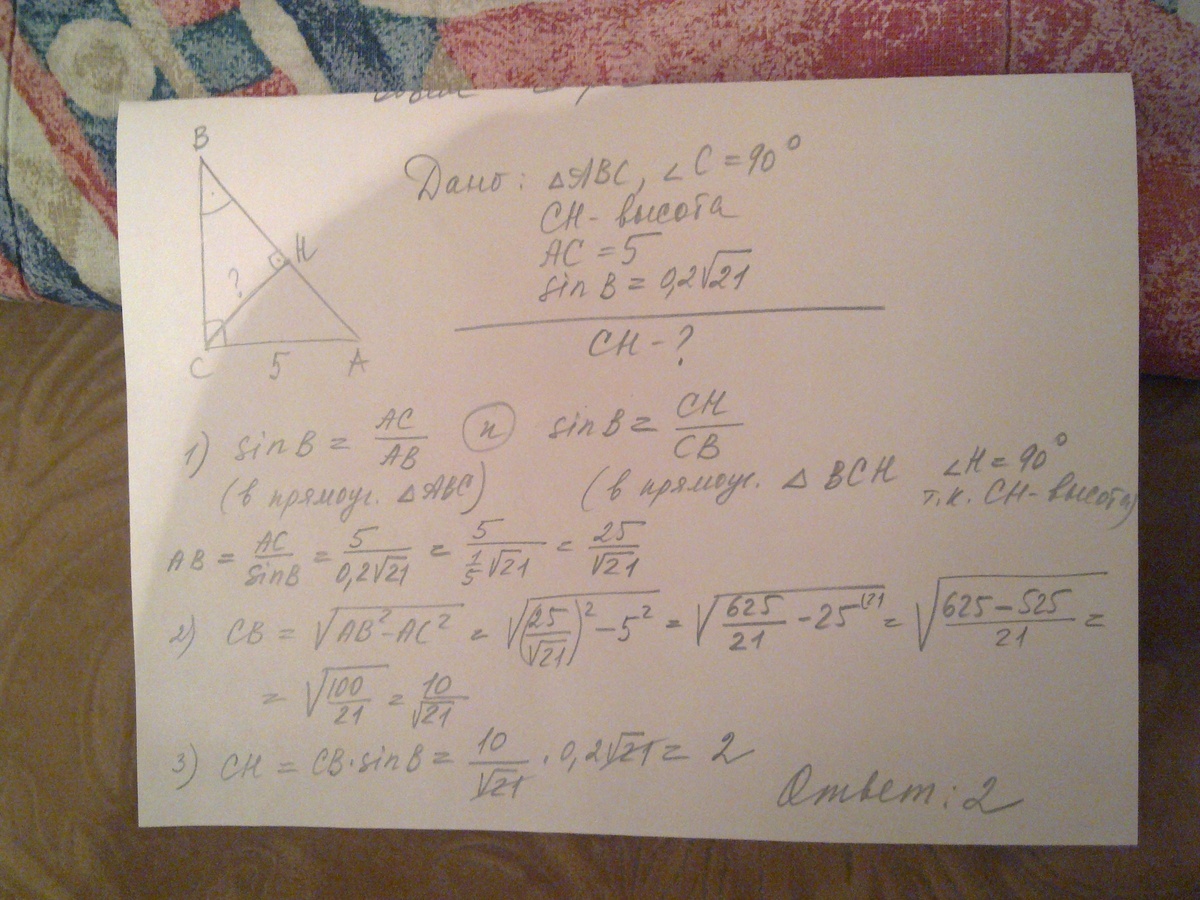 B
H
?
C 5 A
Дано: △ABC, ∠C = 90°
CH - высота
AC = 5
sin B = 0,2√21
CH - ?
1) sin B = AC/AB (и) sin B = CH/CB
(в прямоуг. △ABC) (в прямоуг. △ BCH ∠H = 90°
т.к. CH - высота)
AB = AC/sinB = 5/0,2√21 = 5/(1/5 √21) = 25/√21
2) CB = √(AB² - AC²) = √((25/√21)² - 5²) = √(625/21 - 25^(21) = √((625 - 525)/21) =
= √(100/21) = 10/√21
3) CH = CB · sin B = 10/√21 · 0,2√21 = 2
Ответ: 2